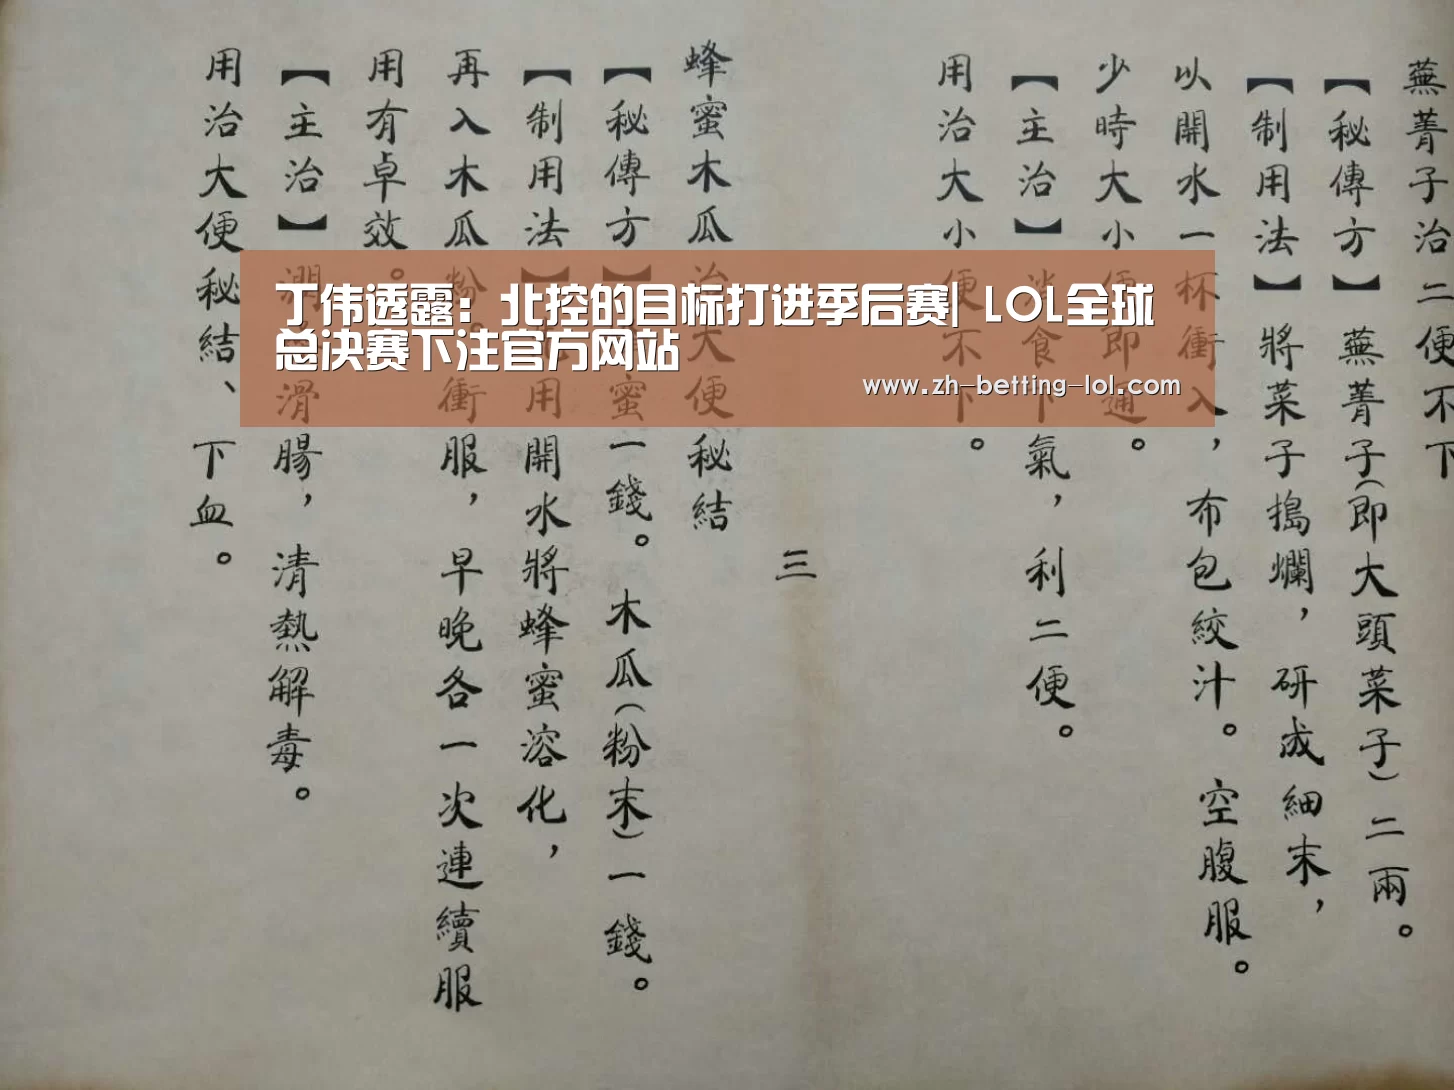 丁伟透露：北控的目标打进季后赛| LOL全球
总决赛下注官方网站
www.zh-betting-lol.com
蕪菁子治二便不下
【秘傳方】蕪菁子（即大頭菜子）二兩。
【制用法】將菜子搗爛，研成細末，
以開水一杯衝入，布包絞汁。空腹服。
少時大小便即通。
【主治】消食下氣，利二便。
用治大小便不下。
三
蜂蜜木瓜治大便秘結
【秘傳方】蜂蜜一錢。木瓜（粉末）一錢。
【制用法】用開水將蜂蜜溶化，
再入木瓜粉衝服，早晚各一次連續服
用有卓效。
【主治】潤滑腸，清熱解毒。
用治大便秘結、下血。